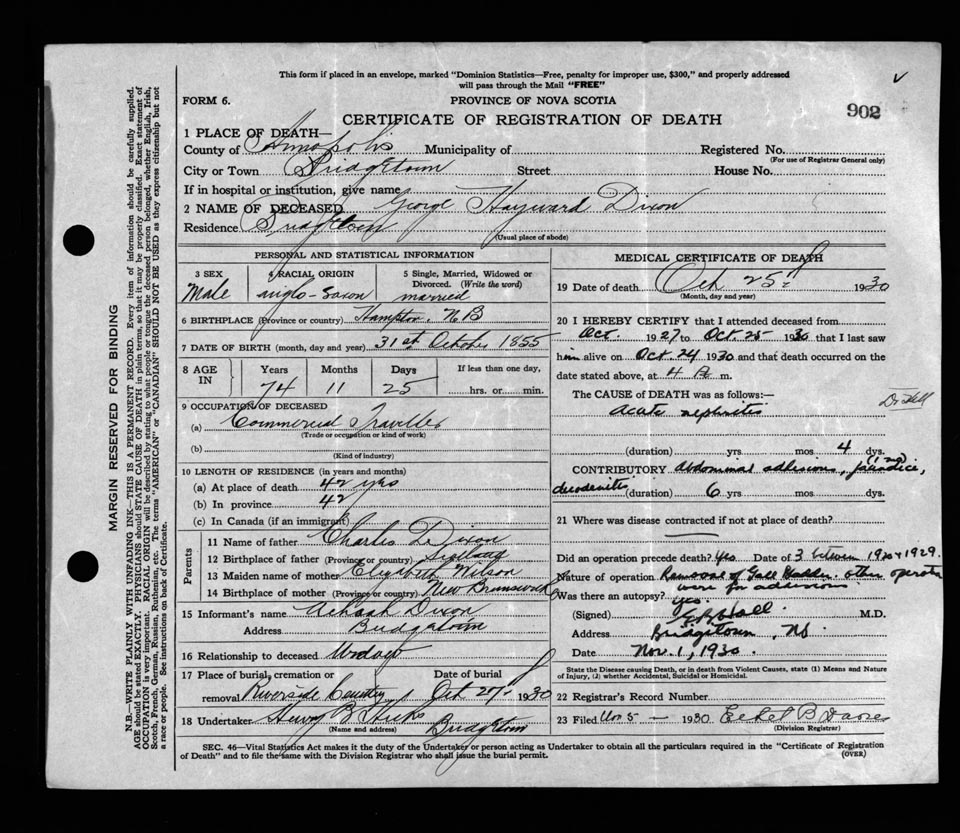 This form if placed in an envelope, marked "Dominion Statistics—Free, penalty for improper use, $300," and properly addressed
will pass through the Mail "FREE"
FORM 6.
PROVINCE OF NOVA SCOTIA
902
CERTIFICATE OF REGISTRATION OF DEATH
1 PLACE OF DEATH—
County of Annapolis Municipality of Registered No.
(For use of Registrar General only)
City or Town Bridgetown Street House No.
If in hospital or institution, give name
2 NAME OF DECEASED George Hayward Dixon
Residence Bridgetown
(Usual place of abode)
PERSONAL AND STATISTICAL INFORMATION
3 SEX Male
4 RACIAL ORIGIN Anglo-Saxon
5 Single, Married, Widowed or
Divorced. (Write the word)
married
6 BIRTHPLACE (Province or country) Hampton, N B
7 DATE OF BIRTH (month, day and year) 31st October 1855
8 AGE IN
Years Months Days If less than one day,
74 11 25 hrs. or min.
9 OCCUPATION OF DECEASED
(a) Commercial Traveller
(Trade or occupation or kind of work)
(b)
(Kind of industry)
10 LENGTH OF RESIDENCE (in years and months)
(a) At place of death 42 yrs
(b) In province 42
(c) In Canada (if an immigrant)
Parents
11 Name of father Charles Dixon
12 Birthplace of father (Province or country)
13 Maiden name of mother Elizabeth Wilson
14 Birthplace of mother (Province or country) New Brunswick
15 Informant's name Dixon
Address Bridgetown
16 Relationship to deceased Widow
17 Place of burial, cremation or Date of burial
removal Riverside Cemetery Oct 27 1930
18 Undertaker Henry B Hicks Bridgetown
(Name and address)
MEDICAL CERTIFICATE OF DEATH
19 Date of death Oct 25 1930
(Month, day and year)
20 I HEREBY CERTIFY that I attended deceased from
Oct. 1927 to Oct. 25 1930 that I last saw
him alive on Oct. 24 1930 and that death occurred on the
date stated above, at 4 A m.
The CAUSE OF DEATH was as follows:
acute nephritis
(duration) yrs mos 4 dys.
CONTRIBUTORY abdominal adhesions, jaundice,
(duration) 6 yrs mos dys.
21 Where was disease contracted if not at place of death?
Did an operation precede death? Yes Date of 3 between 1920 & 1929.
Nature of operation Removal of Gall bladder. other operations
were for adhesions
Was there an autopsy? yes.
(Signed) Hall M.D.
Address Bridgetown, NS
Date Nov. 1, 1930
State the Disease causing Death, or in death from Violent Causes, state (1) Means and Nature
of Injury, (2) whether Accidental, Suicidal or Homicidal.
22 Registrar's Record Number
23 Filed Nov 5 — 1930. Ethel B
(Division Registrar)
SEC. 46—Vital Statistics Act makes it the duty of the Undertaker or person acting as Undertaker to obtain all the particulars required in the "Certificate of Registration
of Death" and to file the same with the Division Registrar who shall issue the burial permit. (OVER)
MARGIN RESERVED FOR BINDING
N.B.—WRITE PLAINLY WITH UNFADING INK—THIS IS A PERMANENT RECORD. Every item of information should be carefully supplied.
AGE should be stated EXACTLY. PHYSICIANS should STATE CAUSE OF DEATH in plain terms, so that it may be properly classified. Exact statement of
OCCUPATION is very important. RACIAL ORIGIN will be described by stating to what people or tongue the deceased person belonged, whether English, Irish,
Scotch, French, German, Russian, Ruthenian, etc. The terms "AMERICAN" or "CANADIAN" SHOULD NOT BE USED as they express citizenship but not
a race or people. See instructions on back of Certificate.